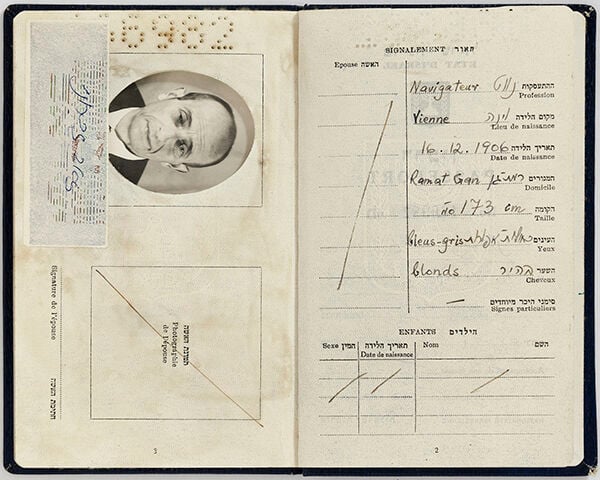 SIGNALEMENT תאור
Epouse האשה
Navigateur נווט ההתעסקות
Profession
Vienne וינה מקום הלידה
Lieu de naissance
16.12.1906 תאריך הלידה
Date de naissance
Ramat Gan רמת גן המגורים
Domicile
173 cm הקומה
Taille
bleus-gris העינים
Yeux
blonds בהיר השער
Cheveux
— סימני היכר מיוחדים
Signes particuliers
ENFANTS הילדים
Sexe המין תאריך הלידה Nom השם
Date de naissance
2
תמונת האשה
Photographie
de l'épouse
Signature de l'épouse חתימת האשה
3